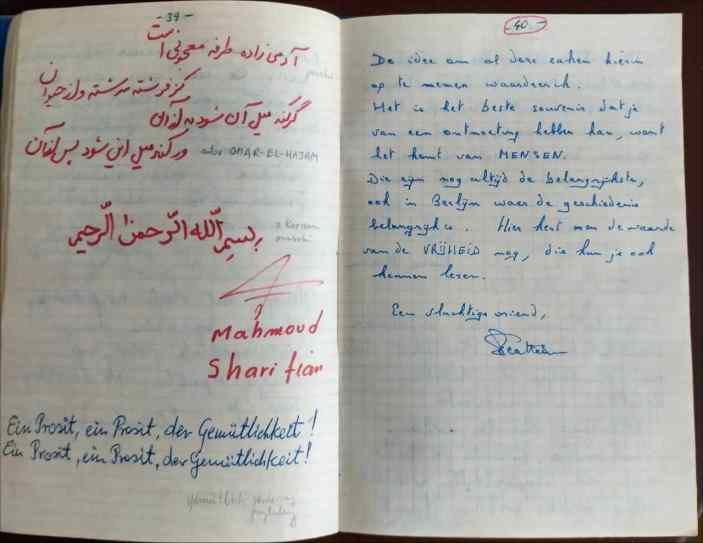 - 39 -
آدمی زاده طرفه معجونی است
کز فرشته سرشته وز حیوان
گر کند میل آن شود به از آن
ور کند میل این شود پس از آن
abo OMAR-EL-HAJAM
بسم الله الرحمن الرحیم
z Koranu
Mahmoud
Sharifian
Ein Prosit, ein Prosit, der Gemütlichkeit!
Ein Prosit, ein Prosit, der Gemütlichkeit!
- 40 -
De idee om al deze zaken hierin
op te nemen waardeer ik.
Het is het beste souvenir dat je
van een ontmoeting hebben kan, want
het komt van MENSEN.
Die zijn nog altijd de belangrijkste,
ook in Berlijn waar de geschiedenis
belangrijk is. Hier kent men de waarde
van de VRIJHEID nog, die kun je ook
kennen leren.
Een vluchtige vriend,